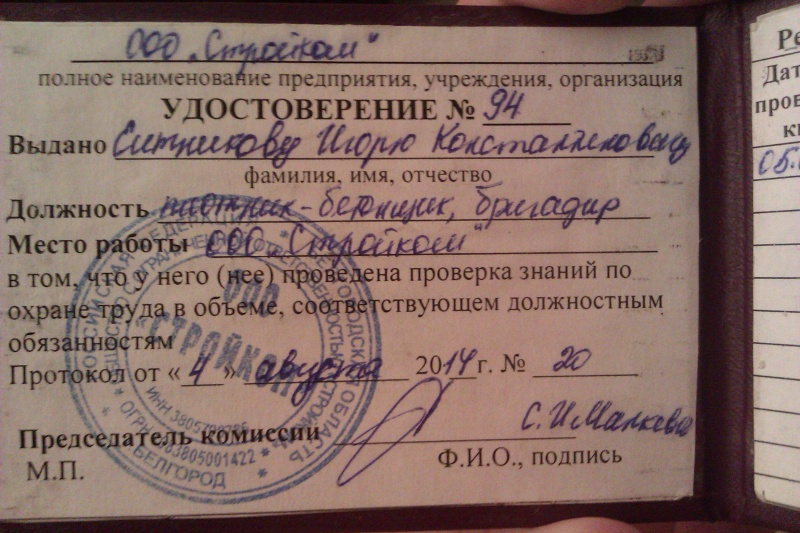 ООО „Стройком"
полное наименование предприятия, учреждения, организация
УДОСТОВЕРЕНИЕ № 94
Выдано Ситникову Игорю Константиновичу
фамилия, имя, отчество
Должность плотник-бетонщик, бригадир
Место работы ООО „Стройком"
в том, что у него (нее) проведена проверка знаний по
охране труда в объеме, соответствующем должностным
обязанностям
Протокол от « 4 » августа 2014 г. № 20
Председатель комиссии С.И Малкова
М.П. Ф.И.О., подпись
ООО
«СТРОЙКОМ»
БЕЛГОРОД
Ре
Дат
пров
к
05.